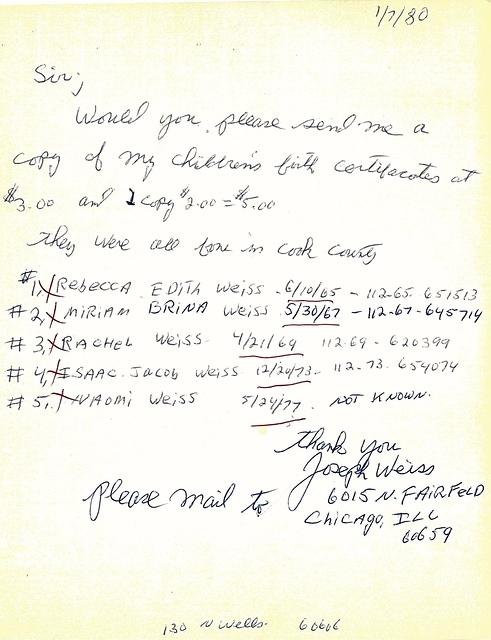 1/7/80
Sir;
Would you please send me a
copy of my children's birth certifecates at
$3.00 and 1 copy $2.00 = $5.00
They were all born in cook county
#1, Rebecca Edith Weiss - 6/10/65 - 112-65-651513
#2, Miriam Brina Weiss 5/30/67 - 112-67-645714
#3, Rachel Weiss 4/21/69 112-69-620399
#4, Isaac Jacob Weiss 12/20/73 - 112-73-654074
#5, Naomi Weiss 5/24/77 - Not Known.
Thank you
Joseph Weiss
please mail to 6015 N. Fairfeld
Chicago, Ill
60659
130 N Wells. 60606